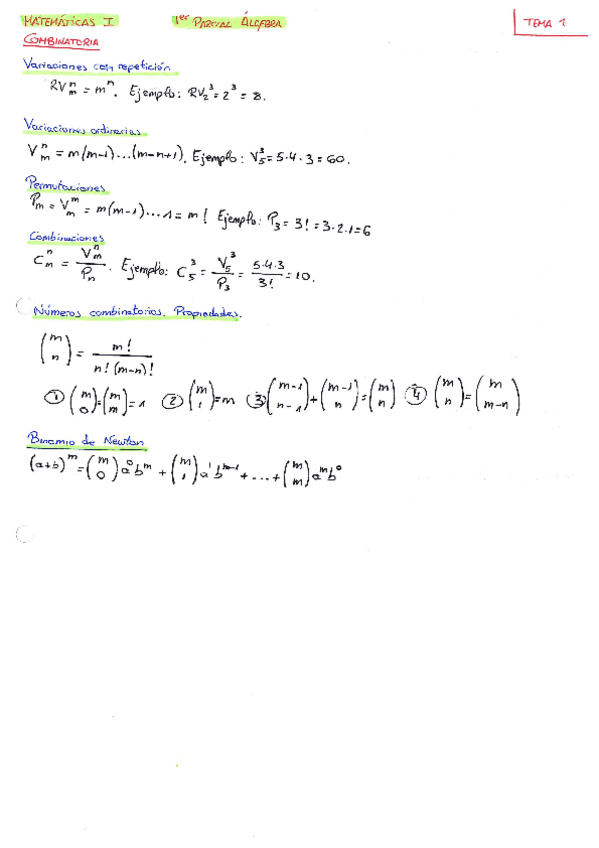 MATEMÁTICAS I 1er PARCIAL ÁLGEBRA TEMA 1
COMBINATORIA
Variaciones con repetición
RV_m^n = m^n. Ejemplo: RV_2^3 = 2^3 = 8.
Variaciones ordinarias
V_m^n = m(m-1)...(m-n+1). Ejemplo: V_5^3 = 5·4·3 = 60.
Permutaciones
P_m = V_m^m = m(m-1)...1 = m! Ejemplo: P_3 = 3! = 3·2·1 = 6
Combinaciones
C_m^n = V_m^n / P_n. Ejemplo: C_5^3 = V_5^3 / P_3 = 5·4·3 / 3! = 10.
Números combinatorios. Propiedades.
(m n) = m! / n!(m-n)!
① (m 0) = (m m) = 1 ② (m 1) = m ③ (m-1 n-1) + (m-1 n) = (m n) ④ (m n) = (m m-n)
Binomio de Newton
(a+b)^m = (m 0) a^0 b^m + (m 1) a^1 b^m-1 + ... + (m m) a^m b^0